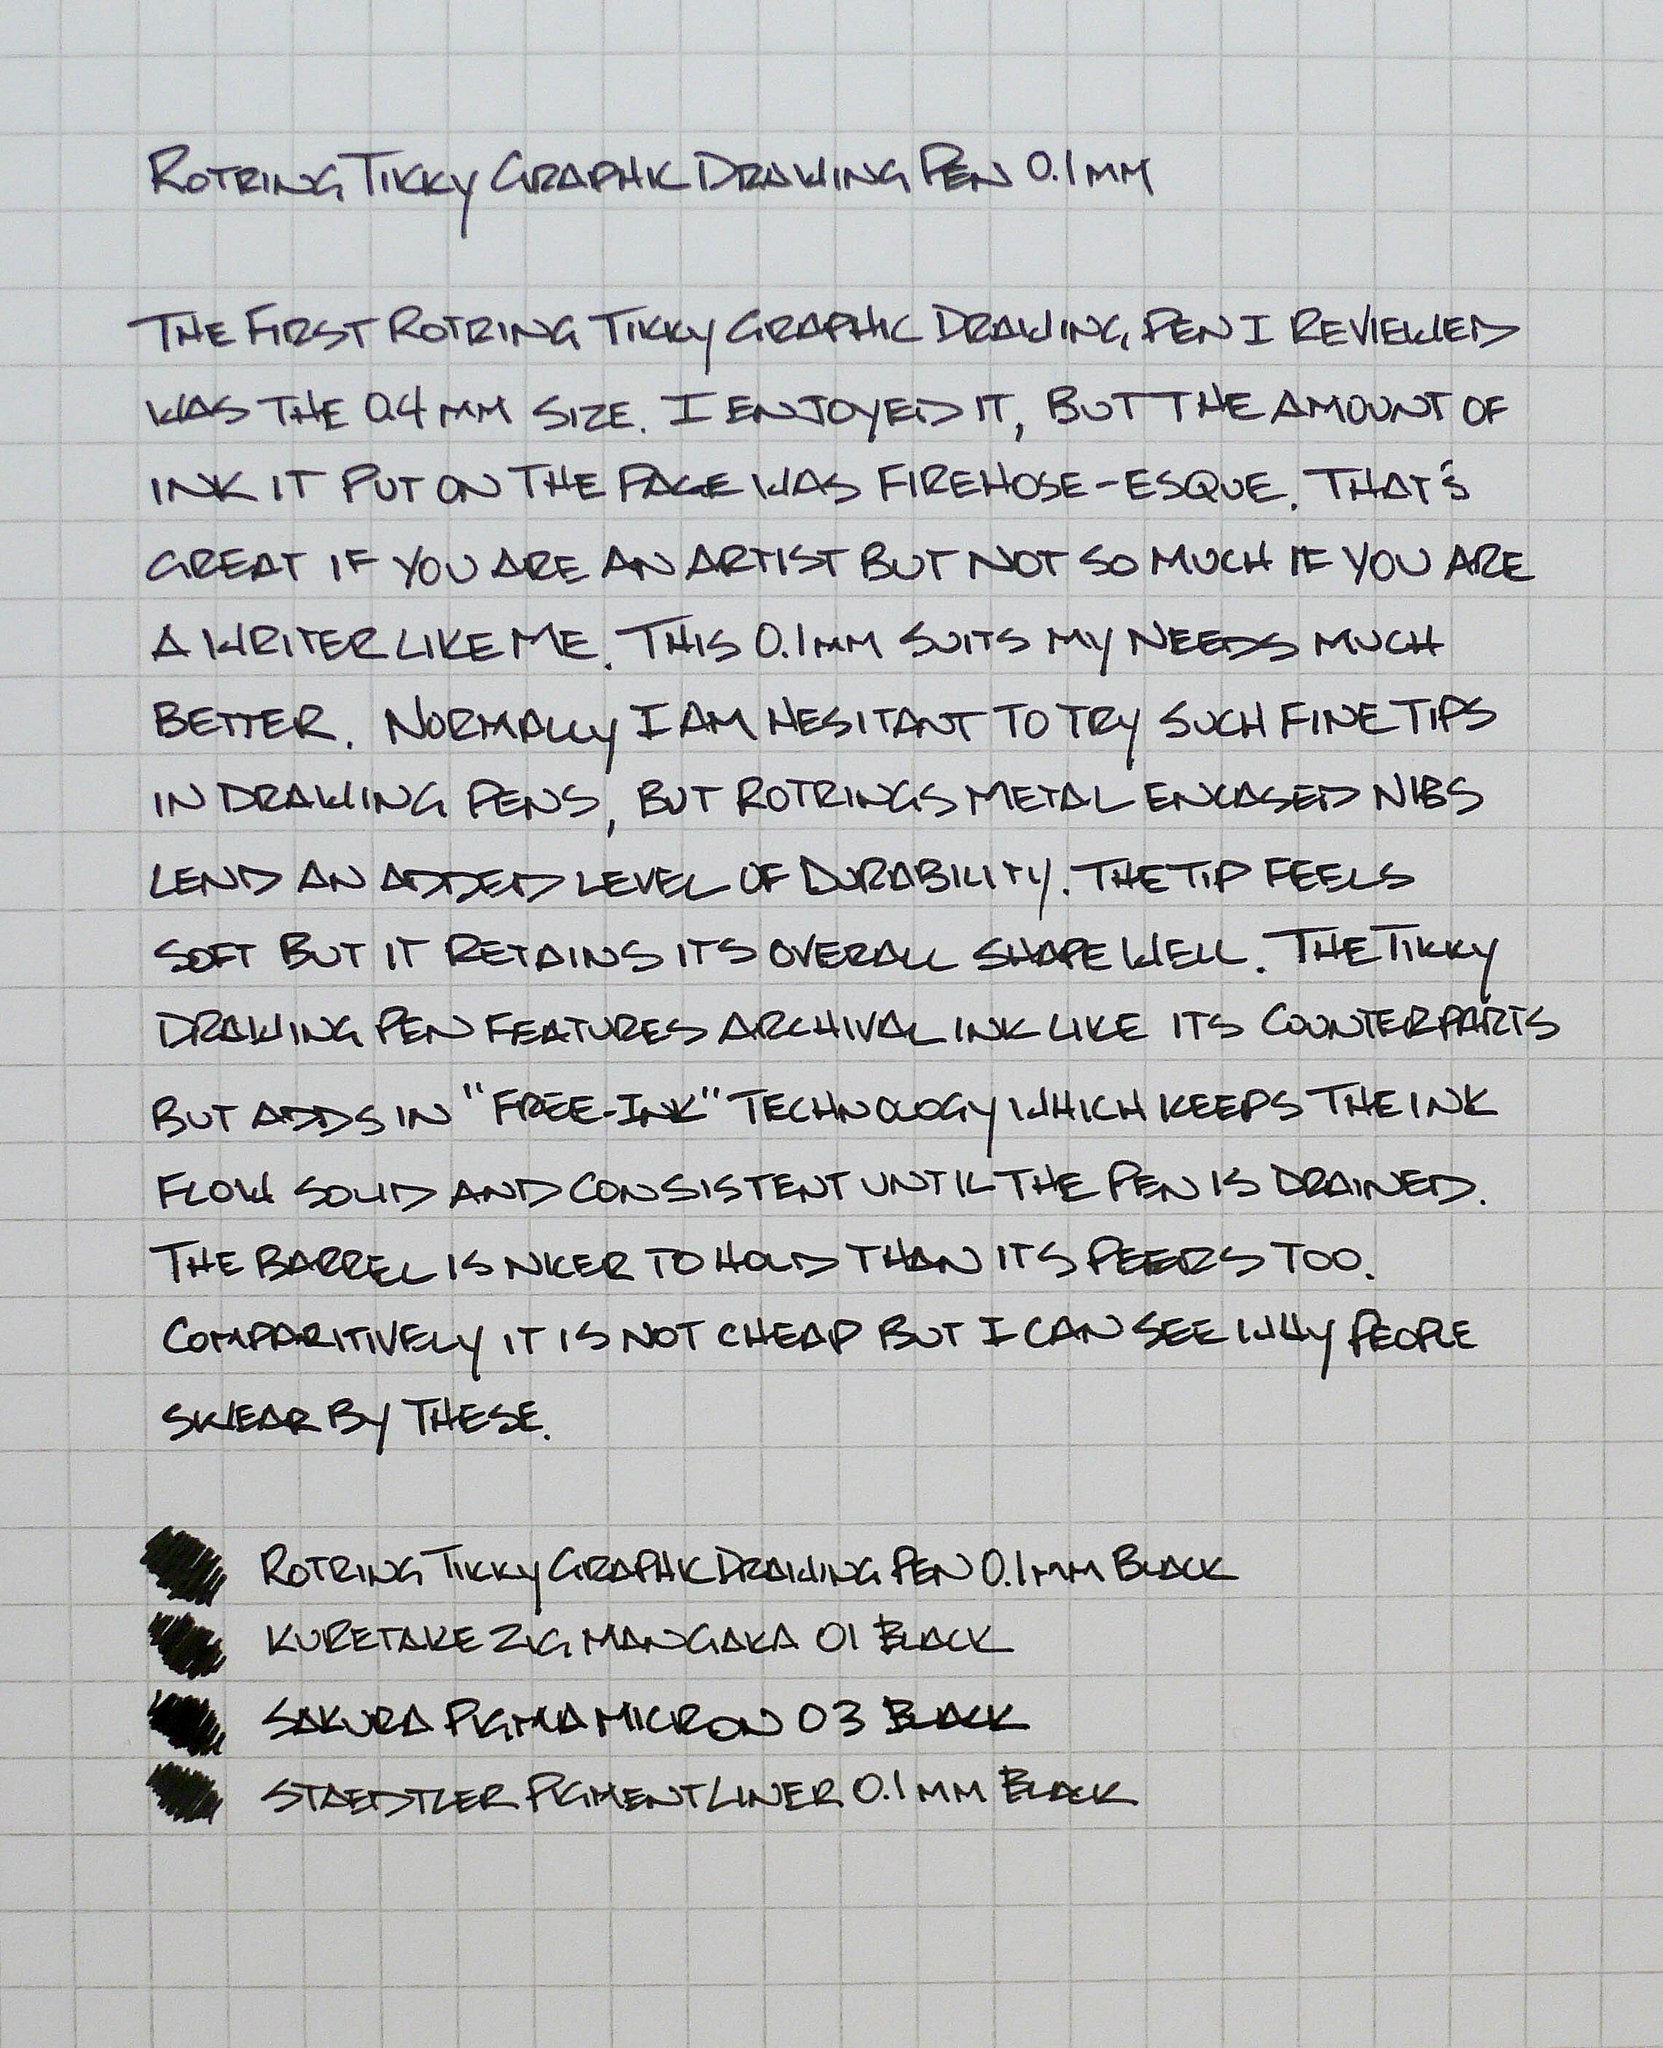 ROTRING TIKKY GRAPHIC DRAWING PEN 0.1MM
THE FIRST ROTRING TIKKY GRAPHIC DRAWING PEN I REVIEWED
WAS THE 0.4MM SIZE. I ENJOYED IT, BUT THE AMOUNT OF
INK IT PUT ON THE PAGE WAS FIREHOSE-ESQUE. THAT'S
GREAT IF YOU ARE AN ARTIST BUT NOT SO MUCH IF YOU ARE
A WRITER LIKE ME. THIS 0.1MM SUITS MY NEEDS MUCH
BETTER. NORMALLY I AM HESITANT TO TRY SUCH FINE TIPS
IN DRAWING PENS, BUT ROTRINGS METAL ENCASED NIBS
LEND AN ADDED LEVEL OF DURABILITY. THE TIP FEELS
SOFT BUT IT RETAINS ITS OVERALL SHAPE WELL. THE TIKKY
DRAWING PEN FEATURES ARCHIVAL INK LIKE ITS COUNTERPARTS
BUT ADDS IN "FREE-INK" TECHNOLOGY WHICH KEEPS THE INK
FLOW SOLID AND CONSISTENT UNTIL THE PEN IS DRAINED.
THE BARREL IS NICER TO HOLD THAN ITS PEERS TOO.
COMPARITIVELY IT IS NOT CHEAP BUT I CAN SEE WHY PEOPLE
SWEAR BY THESE.
ROTRING TIKKY GRAPHIC DRAWING PEN 0.1MM BLACK
KURETAKE ZIG MANGAKA 01 BLACK
SAKURA PIGMA MICRON 03 BLACK
STAEDTLER PIGMENT LINER 0.1MM BLACK